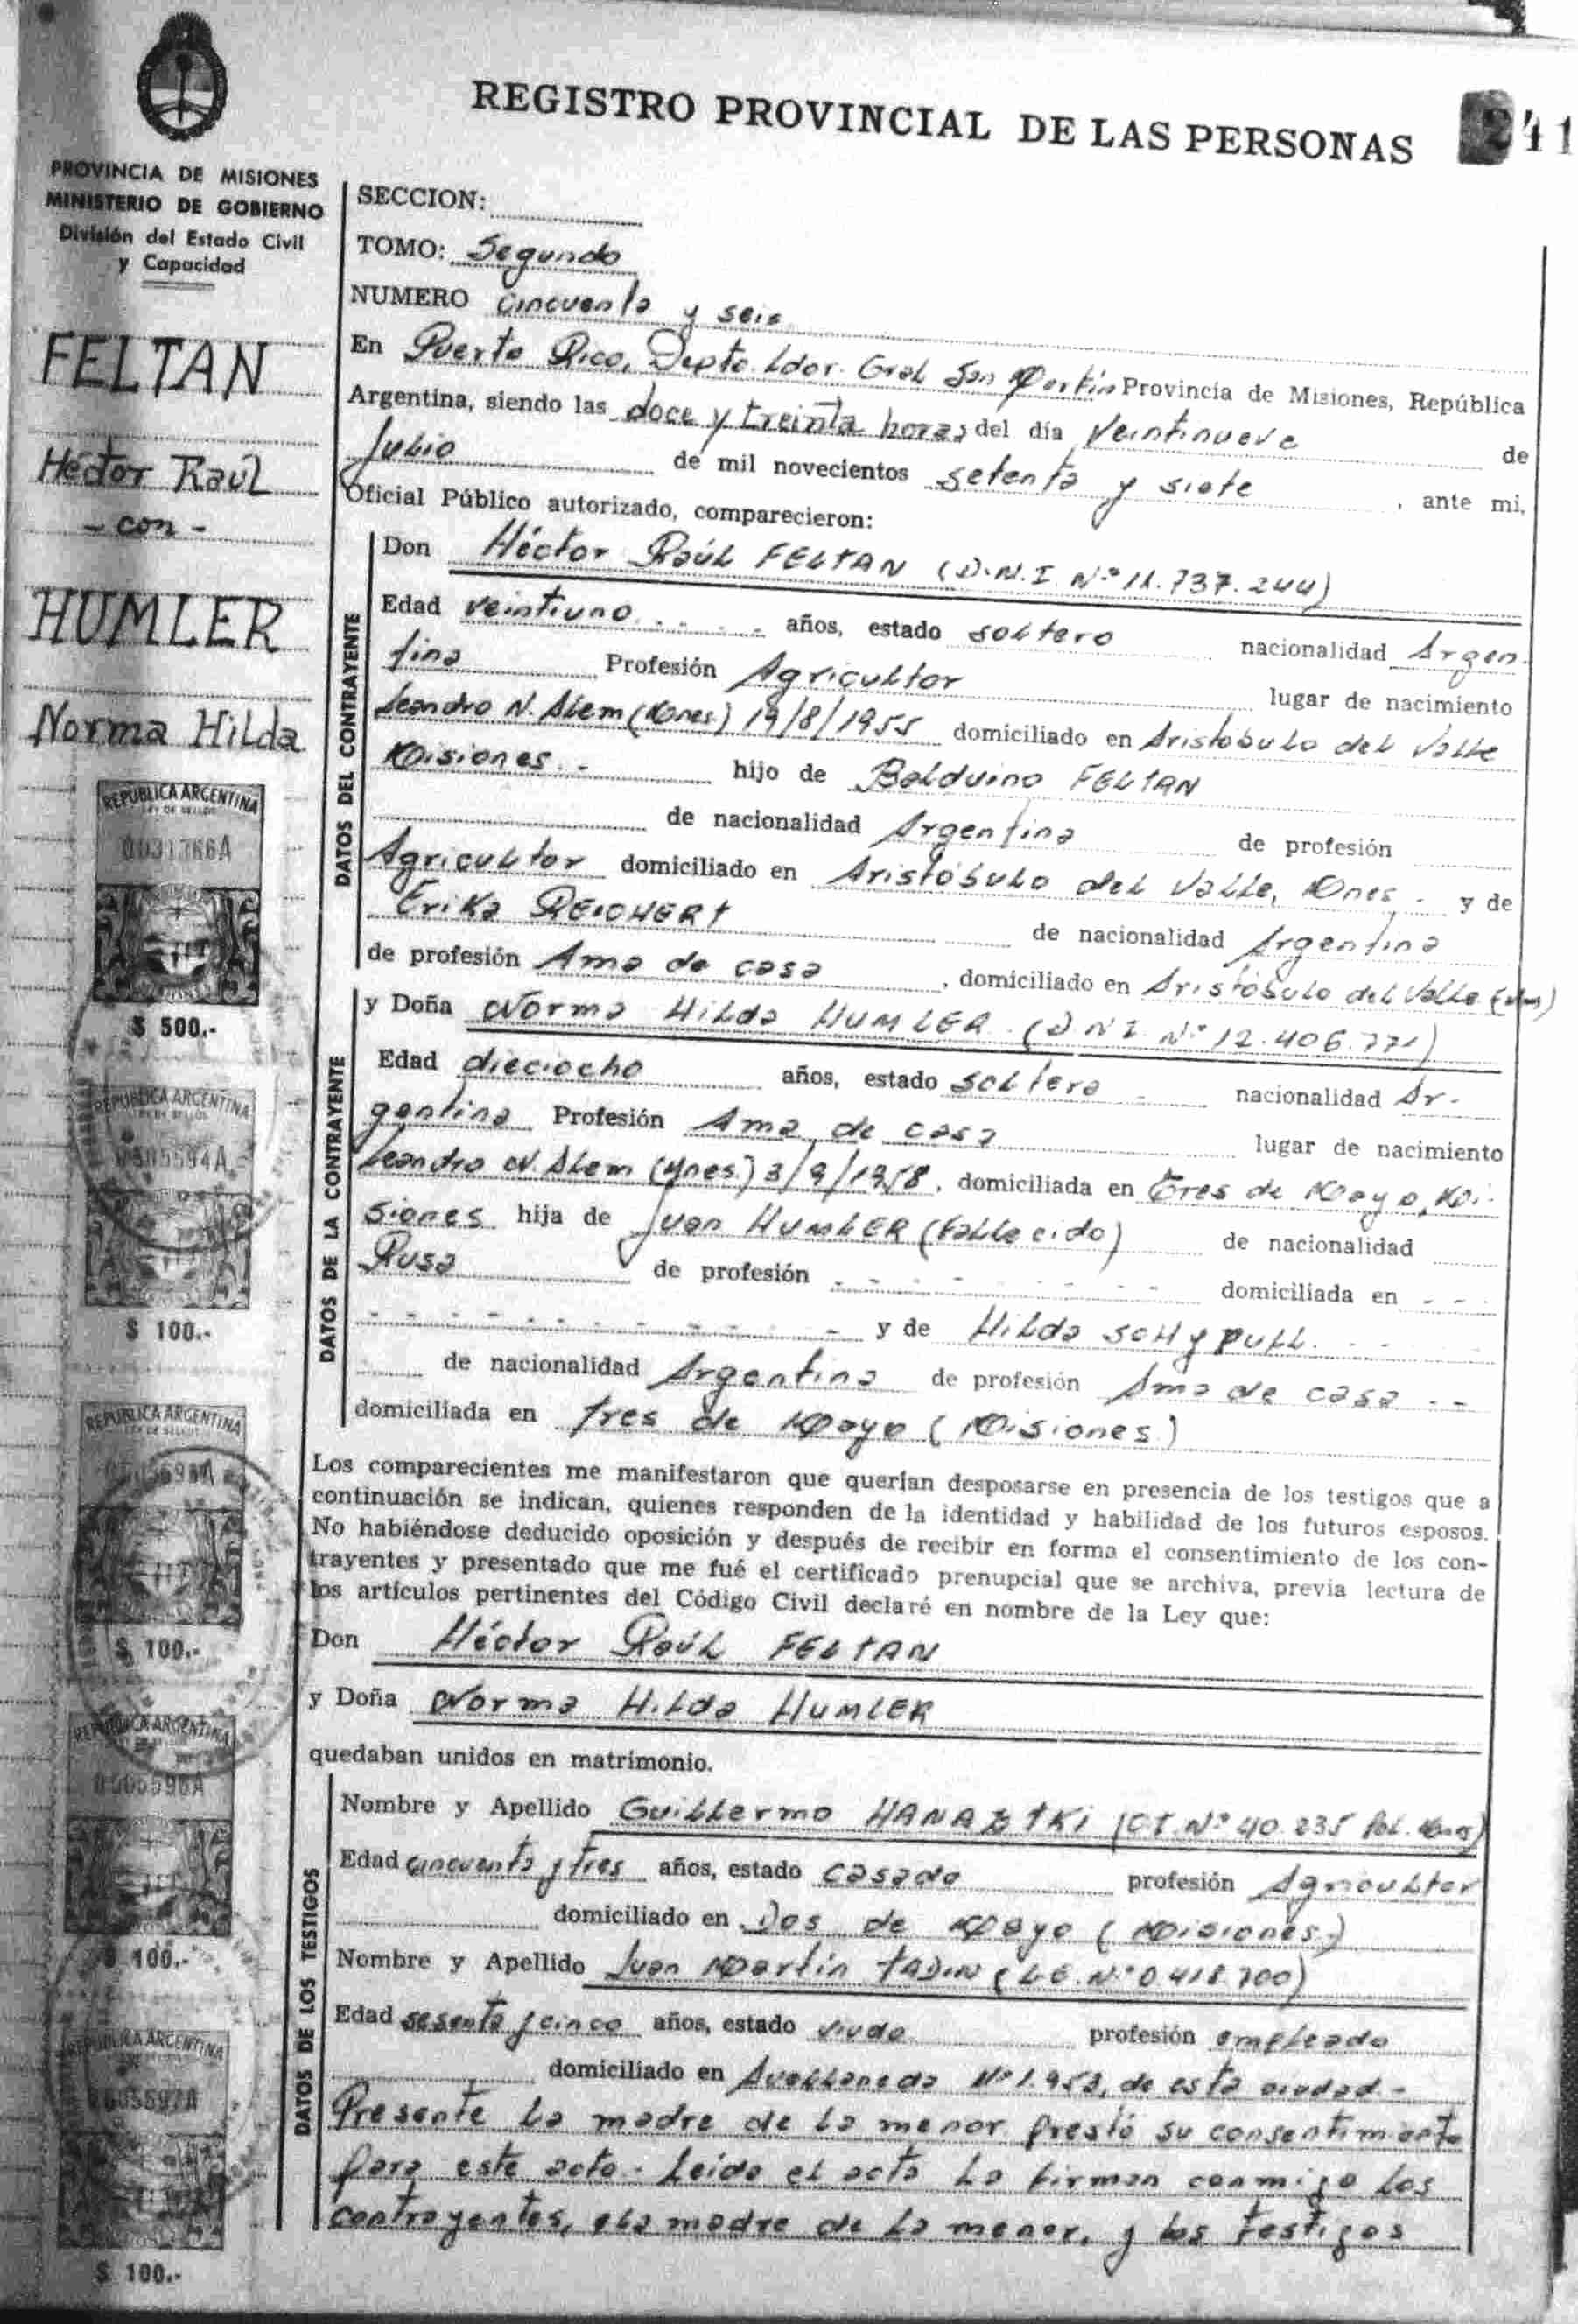 REGISTRO PROVINCIAL DE LAS PERSONAS
241
PROVINCIA DE MISIONES
MINISTERIO DE GOBIERNO
División del Estado Civil
y Capacidad
FELTAN
Héctor Raúl
- con -
HUMLER
Norma Hilda
REPUBLICA ARGENTINA
LEY DE SELLOS
$ 500.-
REPUBLICA ARGENTINA
0505594A
$ 100.-
REPUBLICA ARGENTINA
LEY DE SELLOS
$ 100.-
REPUBLICA ARGENTINA
0505596A
$ 100.-
REPUBLICA ARGENTINA
0505597A
$ 100.-
SECCION:
TOMO: Segundo
NUMERO Cincuenta y seis
En Puerto Rico, Depto. Ldor. Gral San Martín Provincia de Misiones, República
Argentina, siendo las doce y treinta horas del día Veintinueve de
Julio de mil novecientos setenta y siete, ante mi,
Oficial Público autorizado, comparecieron:
DATOS DEL CONTRAYENTE
Don Héctor Raúl FELTAN (D.N.I. Nº 11.737.244)
Edad veintiuno - - - - años, estado soltero nacionalidad Argen-
tina Profesión Agricultor lugar de nacimiento
Leandro N. Alem (Mnes.) 19/8/1955 domiciliado en Aristóbulo del Valle
Misiones.- hijo de Balduino FELTAN
de nacionalidad Argentina de profesión
Agricultor domiciliado en Aristóbulo del Valle, Mnes.- y de
Erika REICHERT de nacionalidad Argentina
de profesión Ama de casa, domiciliado en Aristóbulo del Valle (Mnes)
DATOS DE LA CONTRAYENTE
y Doña Norma Hilda HUMLER (D.N.I. Nº 12.406.771)
Edad dieciocho años, estado soltera nacionalidad Ar-
gentina Profesión Ama de casa lugar de nacimiento
Leandro N. Alem (Mnes.) 3/9/1958, domiciliada en Tres de Mayo, Mi-
siones hija de Juan HUMLER (Fallecido) de nacionalidad
Rusa de profesión - - - - - - domiciliada en - - -
- - - - - - - - - - y de Hilda SCHYPULL. - - -
de nacionalidad Argentina de profesión Ama de casa - -
domiciliada en Tres de Mayo (Misiones)
Los comparecientes me manifestaron que querían desposarse en presencia de los testigos que a
continuación se indican, quienes responden de la identidad y habilidad de los futuros esposos.
No habiéndose deducido oposición y después de recibir en forma el consentimiento de los con-
trayentes y presentado que me fué el certificado prenupcial que se archiva, previa lectura de
los artículos pertinentes del Código Civil declaré en nombre de la Ley que:
Don Héctor Raúl FELTAN
y Doña Norma Hilda HUMLER
quedaban unidos en matrimonio.
DATOS DE LOS TESTIGOS
Nombre y Apellido Guillermo (C.I. Nº 40.235 Pol. Mnes)
Edad cincuenta y tres años, estado casado profesión Agricultor
domiciliado en Dos de Mayo (Misiones)
Nombre y Apellido Juan Martín TADIN (L.E. Nº 0.418.700)
Edad sesenta y cinco años, estado viudo profesión empleado
domiciliado en Avellaneda Nº 1.953, de esta ciudad.-
Presente la madre de la menor prestó su consentimiento
para este acto.- Leída el acta la firman conmigo los
contrayentes, la madre de la menor, y los testigos